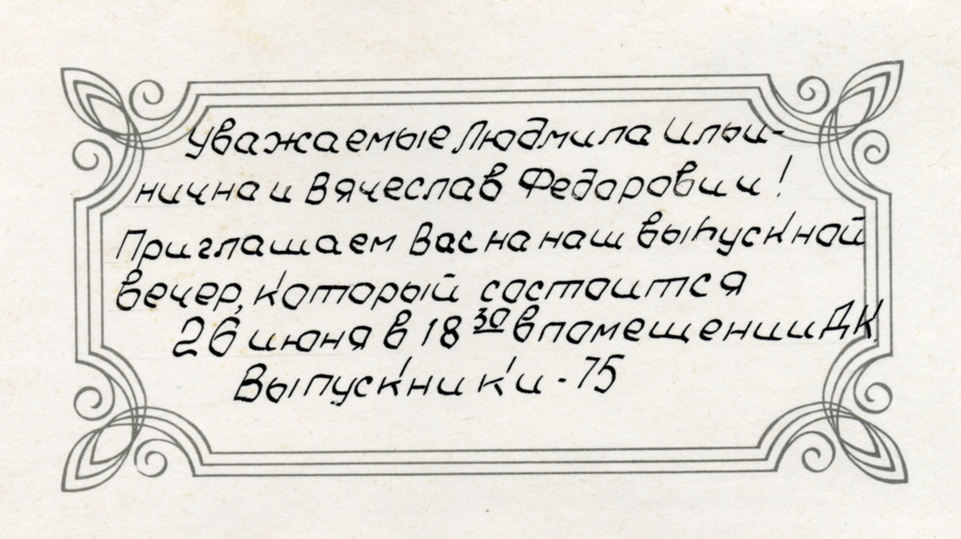 Уважаемые Людмила Ильи-
нична и Вячеслав Федорович!
Приглашаем Вас на наш выпускной
вечер, который состоится
26 июня в 18 30 в помещении ДК
Выпускники - 75